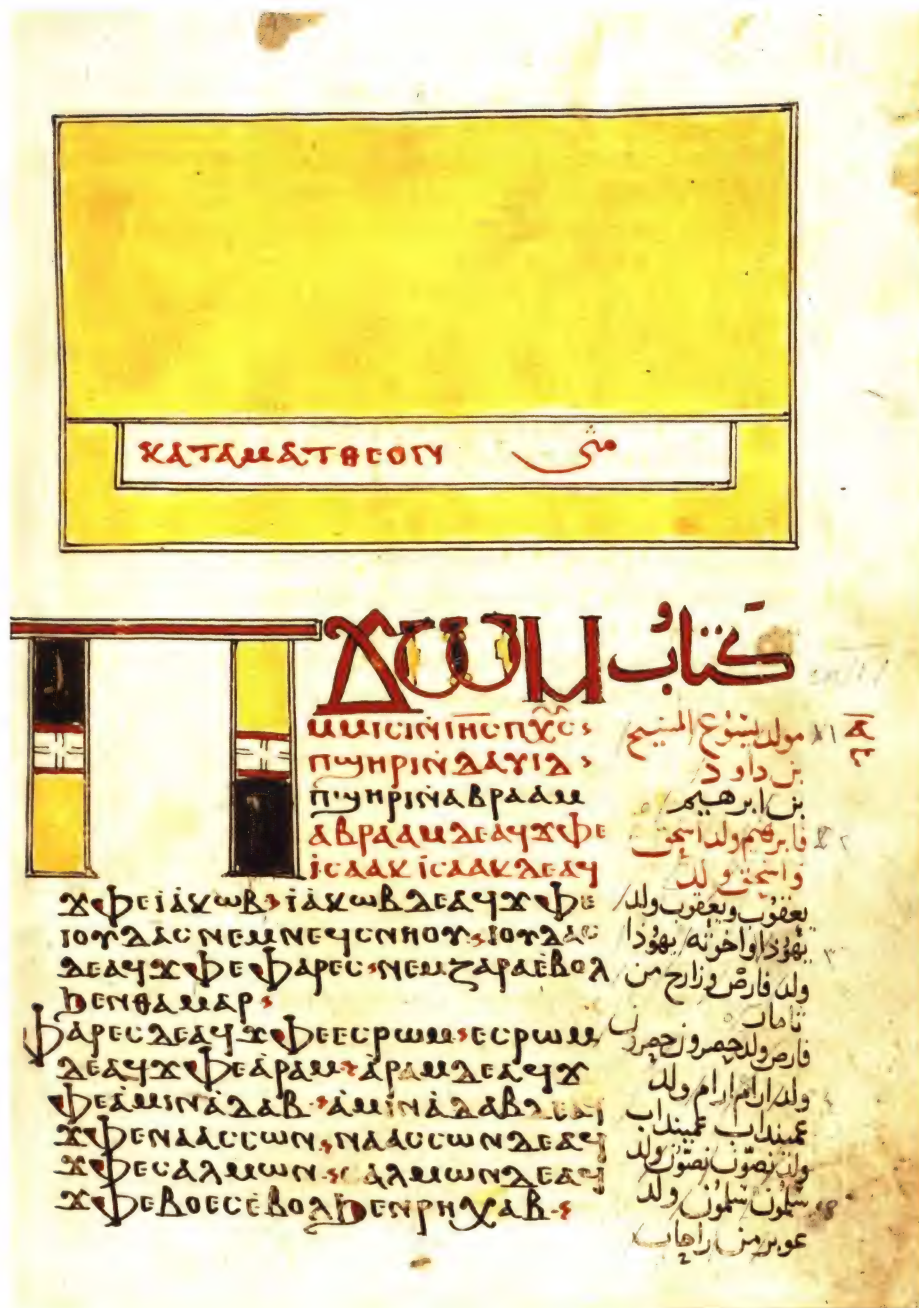 ⲕⲁⲧⲁⲙⲁⲧⲑⲉⲟⲛ متى
ⲡϫⲱⲙ كتاب
ⲙⲙⲓⲥⲓⲛ̀ⲓⲏⲥⲡⲭⲥ
ⲡϣⲏⲣⲓⲛ̀ⲇⲁⲩⲓⲇ
ⲡϣⲏⲣⲓⲛ̀ⲁⲃⲣⲁⲁⲙ
ⲁⲃⲣⲁⲁⲙⲇⲉⲁϥϫⲫⲉ
ⲓⲥⲁⲁⲕ ⲓⲥⲁⲁⲕⲇⲉⲁϥ
ϫⲫⲉⲓⲁⲕⲱⲃ ⲓⲁⲕⲱⲃⲇⲉⲁϥϫⲫⲉ
ⲓⲟⲩⲇⲁⲥⲛⲉⲙⲛⲉϥⲥⲛⲏⲟⲩ ⲓⲟⲩⲇⲁⲥ
ⲇⲉⲁϥϫⲫⲉⲫⲁⲣⲉⲥ ⲛⲉⲙⲍⲁⲣⲁⲉ̀ⲃⲟⲗ
ϧⲉⲛⲑⲁⲙⲁⲣ
ⲫⲁⲣⲉⲥⲇⲉⲁϥϫⲫⲉⲉⲥⲣⲱⲙ ⲉⲥⲣⲱⲙ
ⲇⲉⲁϥϫⲫⲉⲁ̀ⲣⲁⲙ ⲁ̀ⲣⲁⲙⲇⲉⲁϥϫ
ⲫⲉⲁ̀ⲙⲓⲛⲁ̀ⲇⲁⲃ ⲁ̀ⲙⲓⲛⲁ̀ⲇⲁⲃⲇⲉⲁϥ
ϫⲫⲉⲛⲁⲁⲥⲥⲱⲛ ⲛⲁⲁⲥⲥⲱⲛⲇⲉⲁϥ
ϫⲫⲉⲥⲁⲗⲙⲱⲛ ⲥⲁⲗⲙⲱⲛⲇⲉⲁϥ
ϫⲫⲉⲃⲟⲉⲥⲉ̀ⲃⲟⲗϧⲉⲛⲣⲏⲭⲁⲃ
مولد يسوع المسيح
بن داود
بن ابرهيم
فابرهيم ولد اسحق
واسحق ولد
يعقوب ويعقوب ولد
يهوذا واخوته يهوذا
ولد فارص وزارح من
ثامار
فارص ولد حصرون حصرون
ولد ارام ارام ولد
عميناداب عميناداب
ولد نصون نصون ولد
سلمون سلمون ولد
عوبز من راحاب